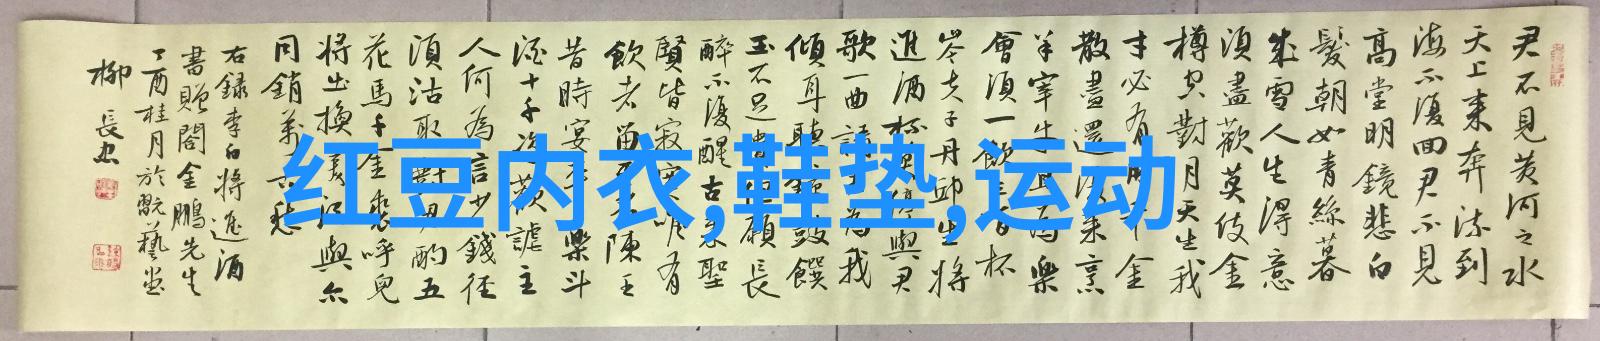 君不见黄河之水
天上来奔流到
海不复回君不见
高堂明镜悲白
髮朝如青丝暮
成雪人生得意
须尽歡莫使金
樽空對月天生我
才必有用千金
散盡還復來烹
羊宰牛且為樂
會须一飲三百杯
岑夫子丹邱生将
進酒杯莫停與君
歌一曲請君為我
倾耳聽鐘鼓饌
玉不足貴但願長
醉不復醒古来聖
賢皆寂寞唯有
飲者留其名陳王
昔時宴平樂斗
酒十千恣歡謔主
人何為言少錢径
須沽取對君酌五
花馬千金裘呼兒
将出換美酒與尔
同銷萬古愁
右録李白将進酒
書贈閻金鵬先生
丁酉桂月於
柳長忠
红豆内衣,鞋垫,运动